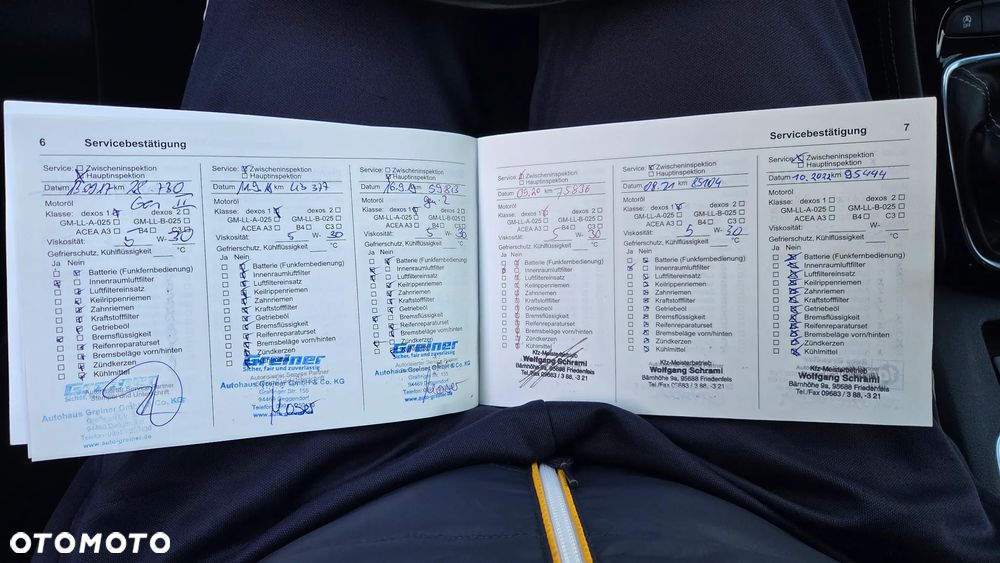 6
Servicebestätigung
Service: Zwischeninspektion
Hauptinspektion
Datum km 28.730
Motoröl Gen II
Klasse: dexos 1 dexos 2
GM-LL-A-025 GM-LL-B-025
ACEA A3 B4 C3
Viskosität: 5 W- 30
Gefrierschutz, Kühlflüssigkeit °C
Ja Nein
Batterie (Funkfernbedienung)
Innenraumluftfilter
Luftfiltereinsatz
Keilrippenriemen
Zahnriemen
Kraftstofffilter
Getriebeöl
Bremsflüssigkeit
Reifenreparaturset
Bremsbeläge vorn/hinten
Zündkerzen
Kühlmittel
Autohaus Greiner GmbH & Co. KG
www.auto-greiner.de
Service: Zwischeninspektion
Hauptinspektion
Datum 11.9.18 km 43 377
Motoröl
Klasse: dexos 1 dexos 2
GM-LL-A-025 GM-LL-B-025
ACEA A3 B4 C3
Viskosität: 5 W- 30
Gefrierschutz, Kühlflüssigkeit °C
Ja Nein
Batterie (Funkfernbedienung)
Innenraumluftfilter
Luftfiltereinsatz
Keilrippenriemen
Zahnriemen
Kraftstofffilter
Getriebeöl
Bremsflüssigkeit
Reifenreparaturset
Bremsbeläge vorn/hinten
Zündkerzen
Greiner
Sicher, fair und zuverlässig
Autohaus Greiner GmbH & Co. KG
94469 Deggendorf
Service: Zwischeninspektion
Hauptinspektion
Datum 16.9.19 km 59813
Motoröl Gen. 2
Klasse: dexos 1 dexos 2
GM-LL-A-025 GM-LL-B-025
ACEA A3 B4 C3
Viskosität: 5 W- 30
Gefrierschutz, Kühlflüssigkeit °C
Ja Nein
Batterie (Funkfernbedienung)
Innenraumluftfilter
Luftfiltereinsatz
Keilrippenriemen
Zahnriemen
Kraftstofffilter
Getriebeöl
Bremsflüssigkeit
Reifenreparaturset
Bremsbeläge vorn/hinten
Zündkerzen
Greiner
Sicher, fair und zuverlässig
Autohaus Greiner GmbH & Co. KG
94469 Deggendorf
7
Servicebestätigung
Service: Zwischeninspektion
Hauptinspektion
Datum 05.20 km 75836
Motoröl
Klasse: dexos 1 dexos 2
GM-LL-A-025 GM-LL-B-025
ACEA A3 B4 C3
Viskosität: 5 W- 30
Gefrierschutz, Kühlflüssigkeit °C
Ja Nein
Batterie (Funkfernbedienung)
Innenraumluftfilter
Luftfiltereinsatz
Keilrippenriemen
Zahnriemen
Kraftstofffilter
Getriebeöl
Bremsflüssigkeit
Reifenreparaturset
Bremsbeläge vorn/hinten
Zündkerzen
Kühlmittel
Kfz-Meisterbetrieb
Wolfgang Schraml
Bärnhöhe 9a, 95688 Friedenfels
Tel./Fax 09683 / 3 88, -3 21
Service: Zwischeninspektion
Hauptinspektion
Datum 08.21 km 85104
Motoröl
Klasse: dexos 1 dexos 2
GM-LL-A-025 GM-LL-B-025
ACEA A3 B4 C3
Viskosität: 5 W- 30
Gefrierschutz, Kühlflüssigkeit °C
Ja Nein
Batterie (Funkfernbedienung)
Innenraumluftfilter
Luftfiltereinsatz
Keilrippenriemen
Zahnriemen
Kraftstofffilter
Getriebeöl
Bremsflüssigkeit
Reifenreparaturset
Bremsbeläge vorn/hinten
Zündkerzen
Kühlmittel
Kfz-Meisterbetrieb
Wolfgang Schraml
Bärnhöhe 9a, 95688 Friedenfels
Tel./Fax 09683 / 3 88, -3 21
Service: Zwischeninspektion
Hauptinspektion
Datum 10.2022 km 95444
Motoröl
Klasse: dexos 1 dexos 2
GM-LL-A-025 GM-LL-B-025
ACEA A3 B4 C3
Viskosität: 5 W- 30
Gefrierschutz, Kühlflüssigkeit °C
Ja Nein
Batterie (Funkfernbedienung)
Innenraumluftfilter
Luftfiltereinsatz
Keilrippenriemen
Zahnriemen
Kraftstofffilter
Getriebeöl
Bremsflüssigkeit
Reifenreparaturset
Bremsbeläge vorn/hinten
Zündkerzen
Kühlmittel
Kfz-Meisterbetrieb
Wolfgang Schraml
Bärnhöhe 9a, 95688 Friedenfels
Tel./Fax 09683 / 3 88, -3 21
OTOMOTO